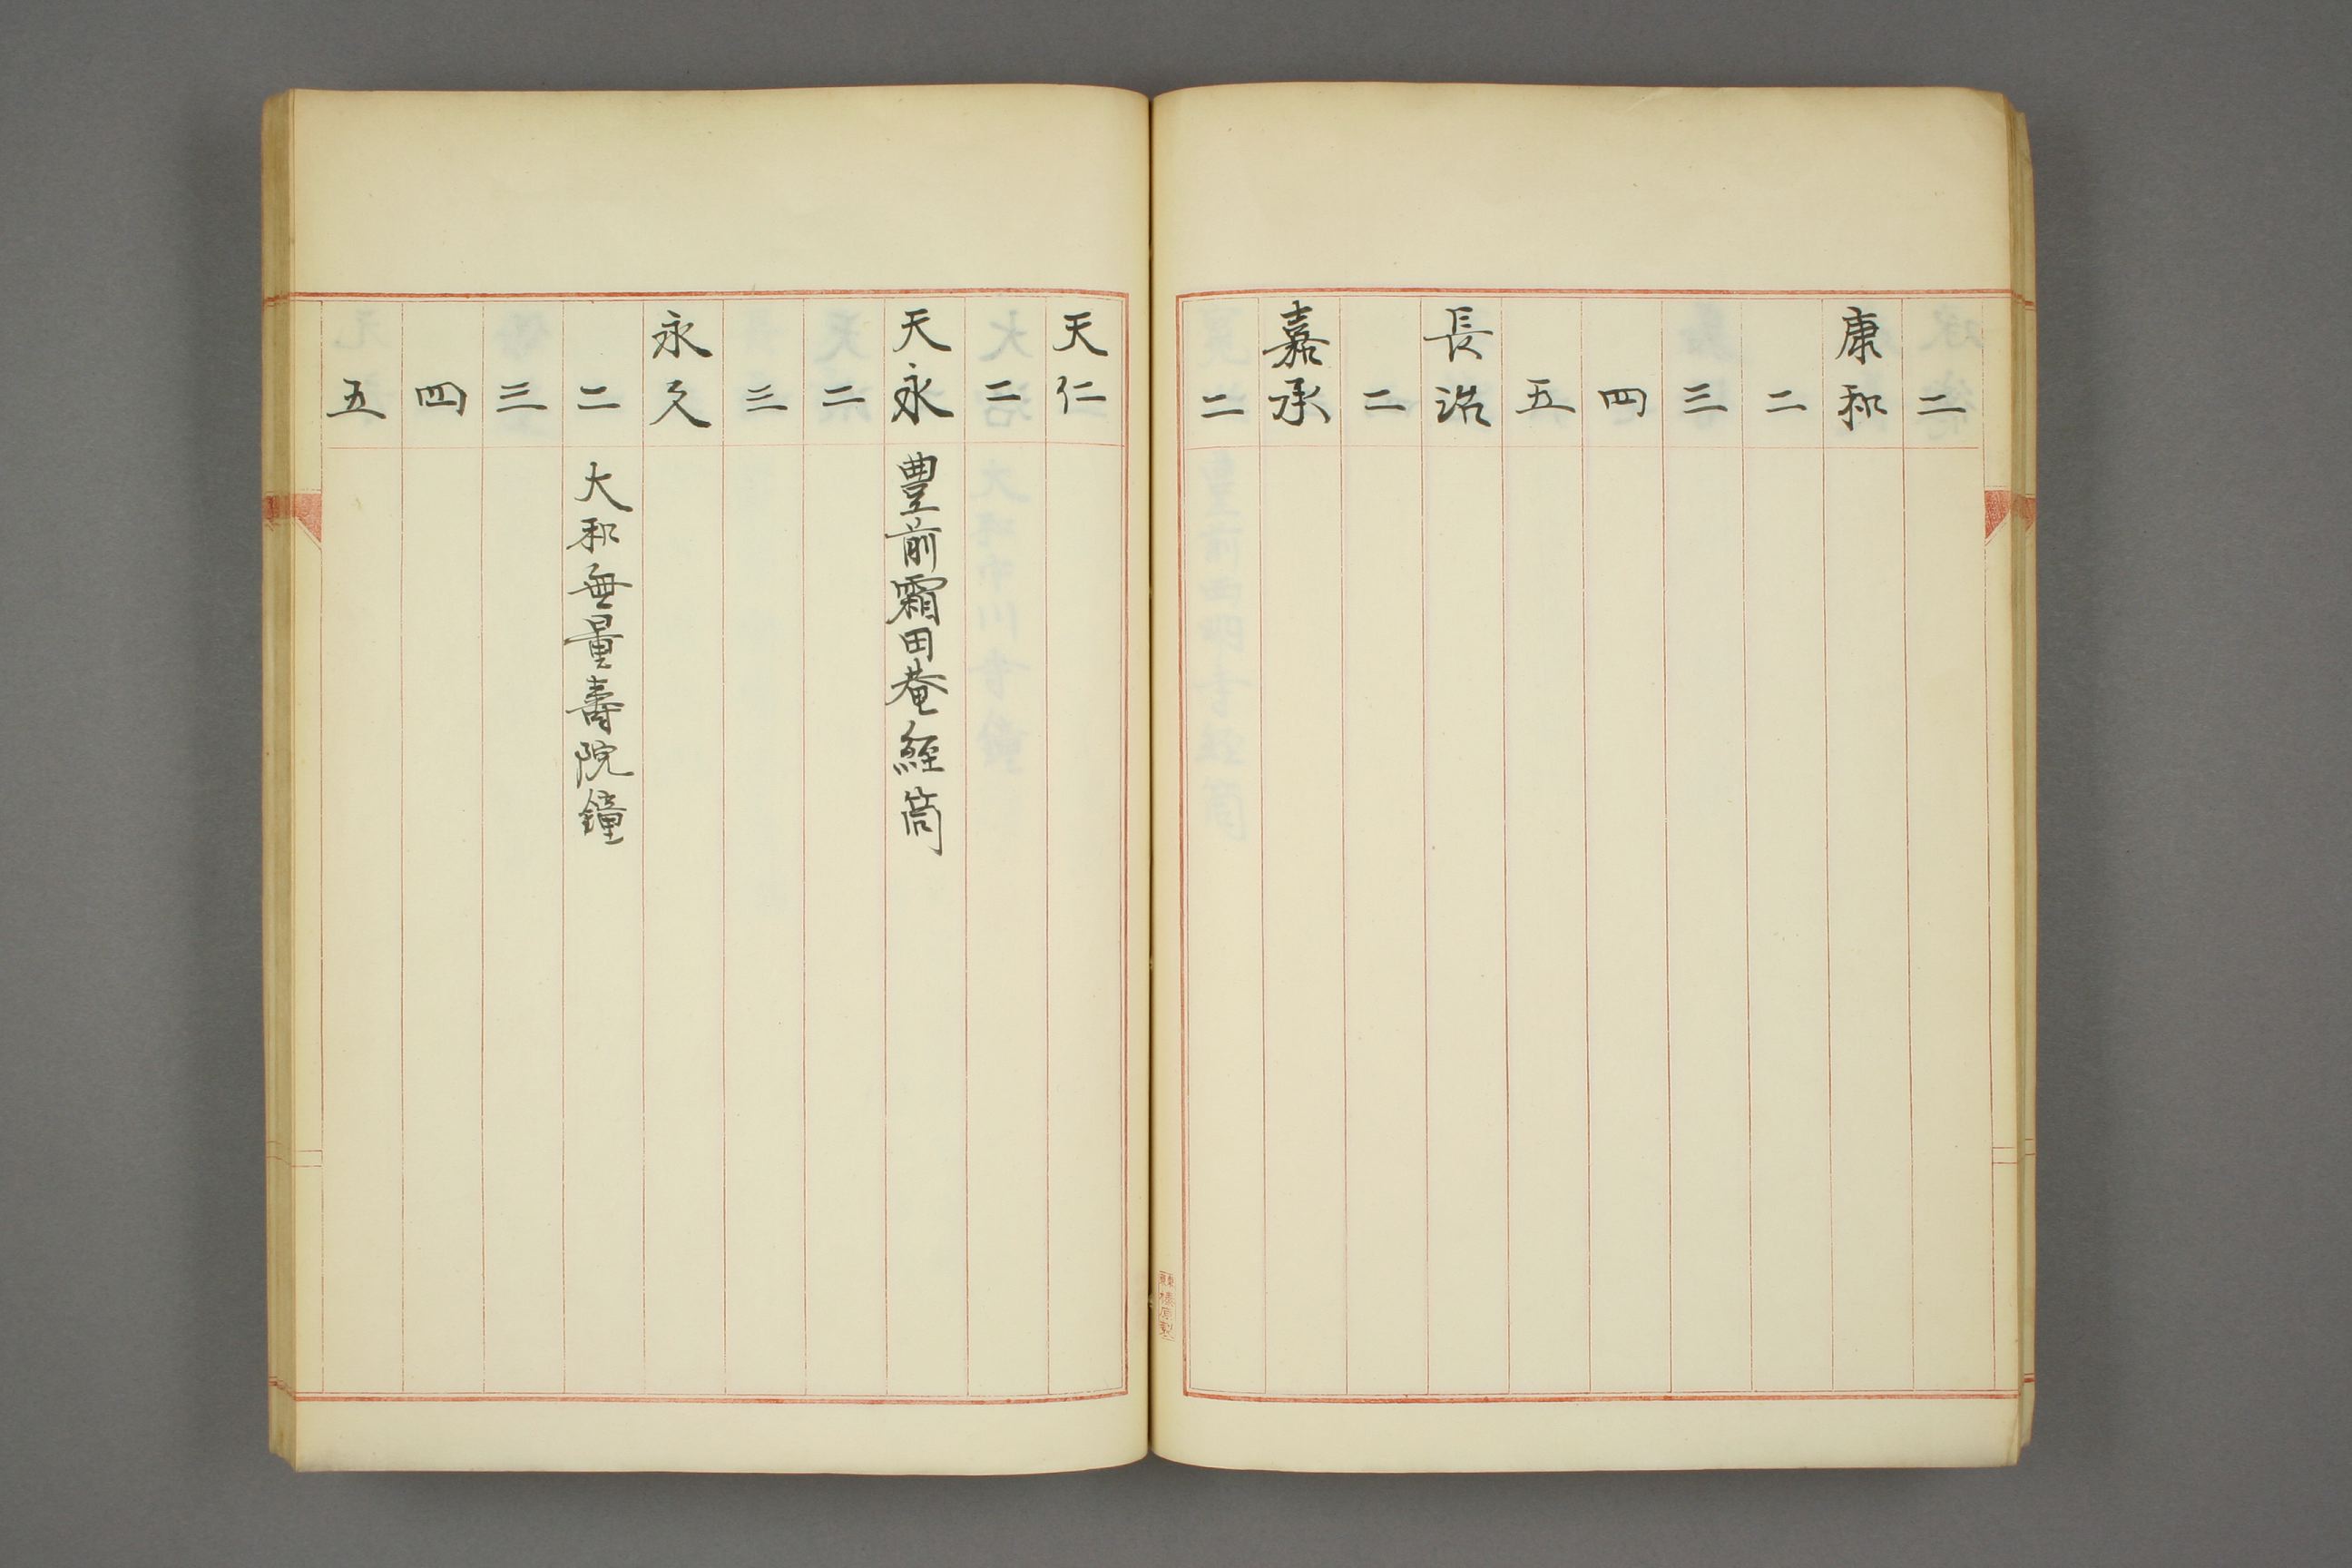 二
康和
二
三
四
五
長治
二
嘉承
二
天仁
二
天永 豊前霜田菴經筒
二
三
永久
二 大和無量壽院鐘
三
四
五